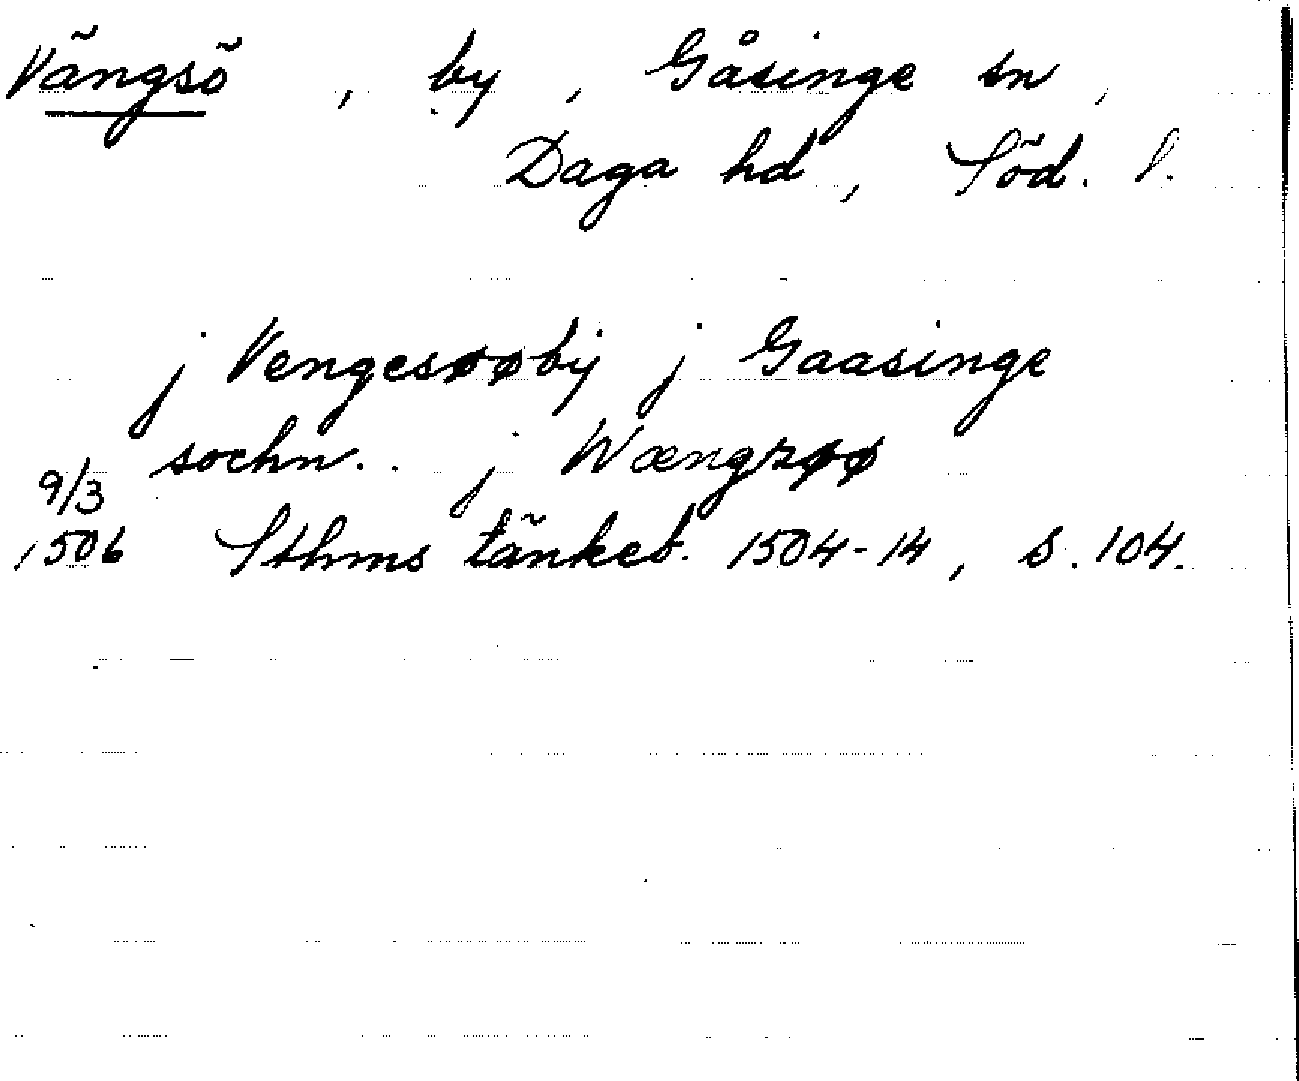 Vängsö, by, Gåsinge sn,
Daga hd, Söd. l.
j Vengesøøbij j Gaasinge
sochn.. j Wængzøø
9/3
1506 Sthms tänkeb. 1504-14, s. 104.